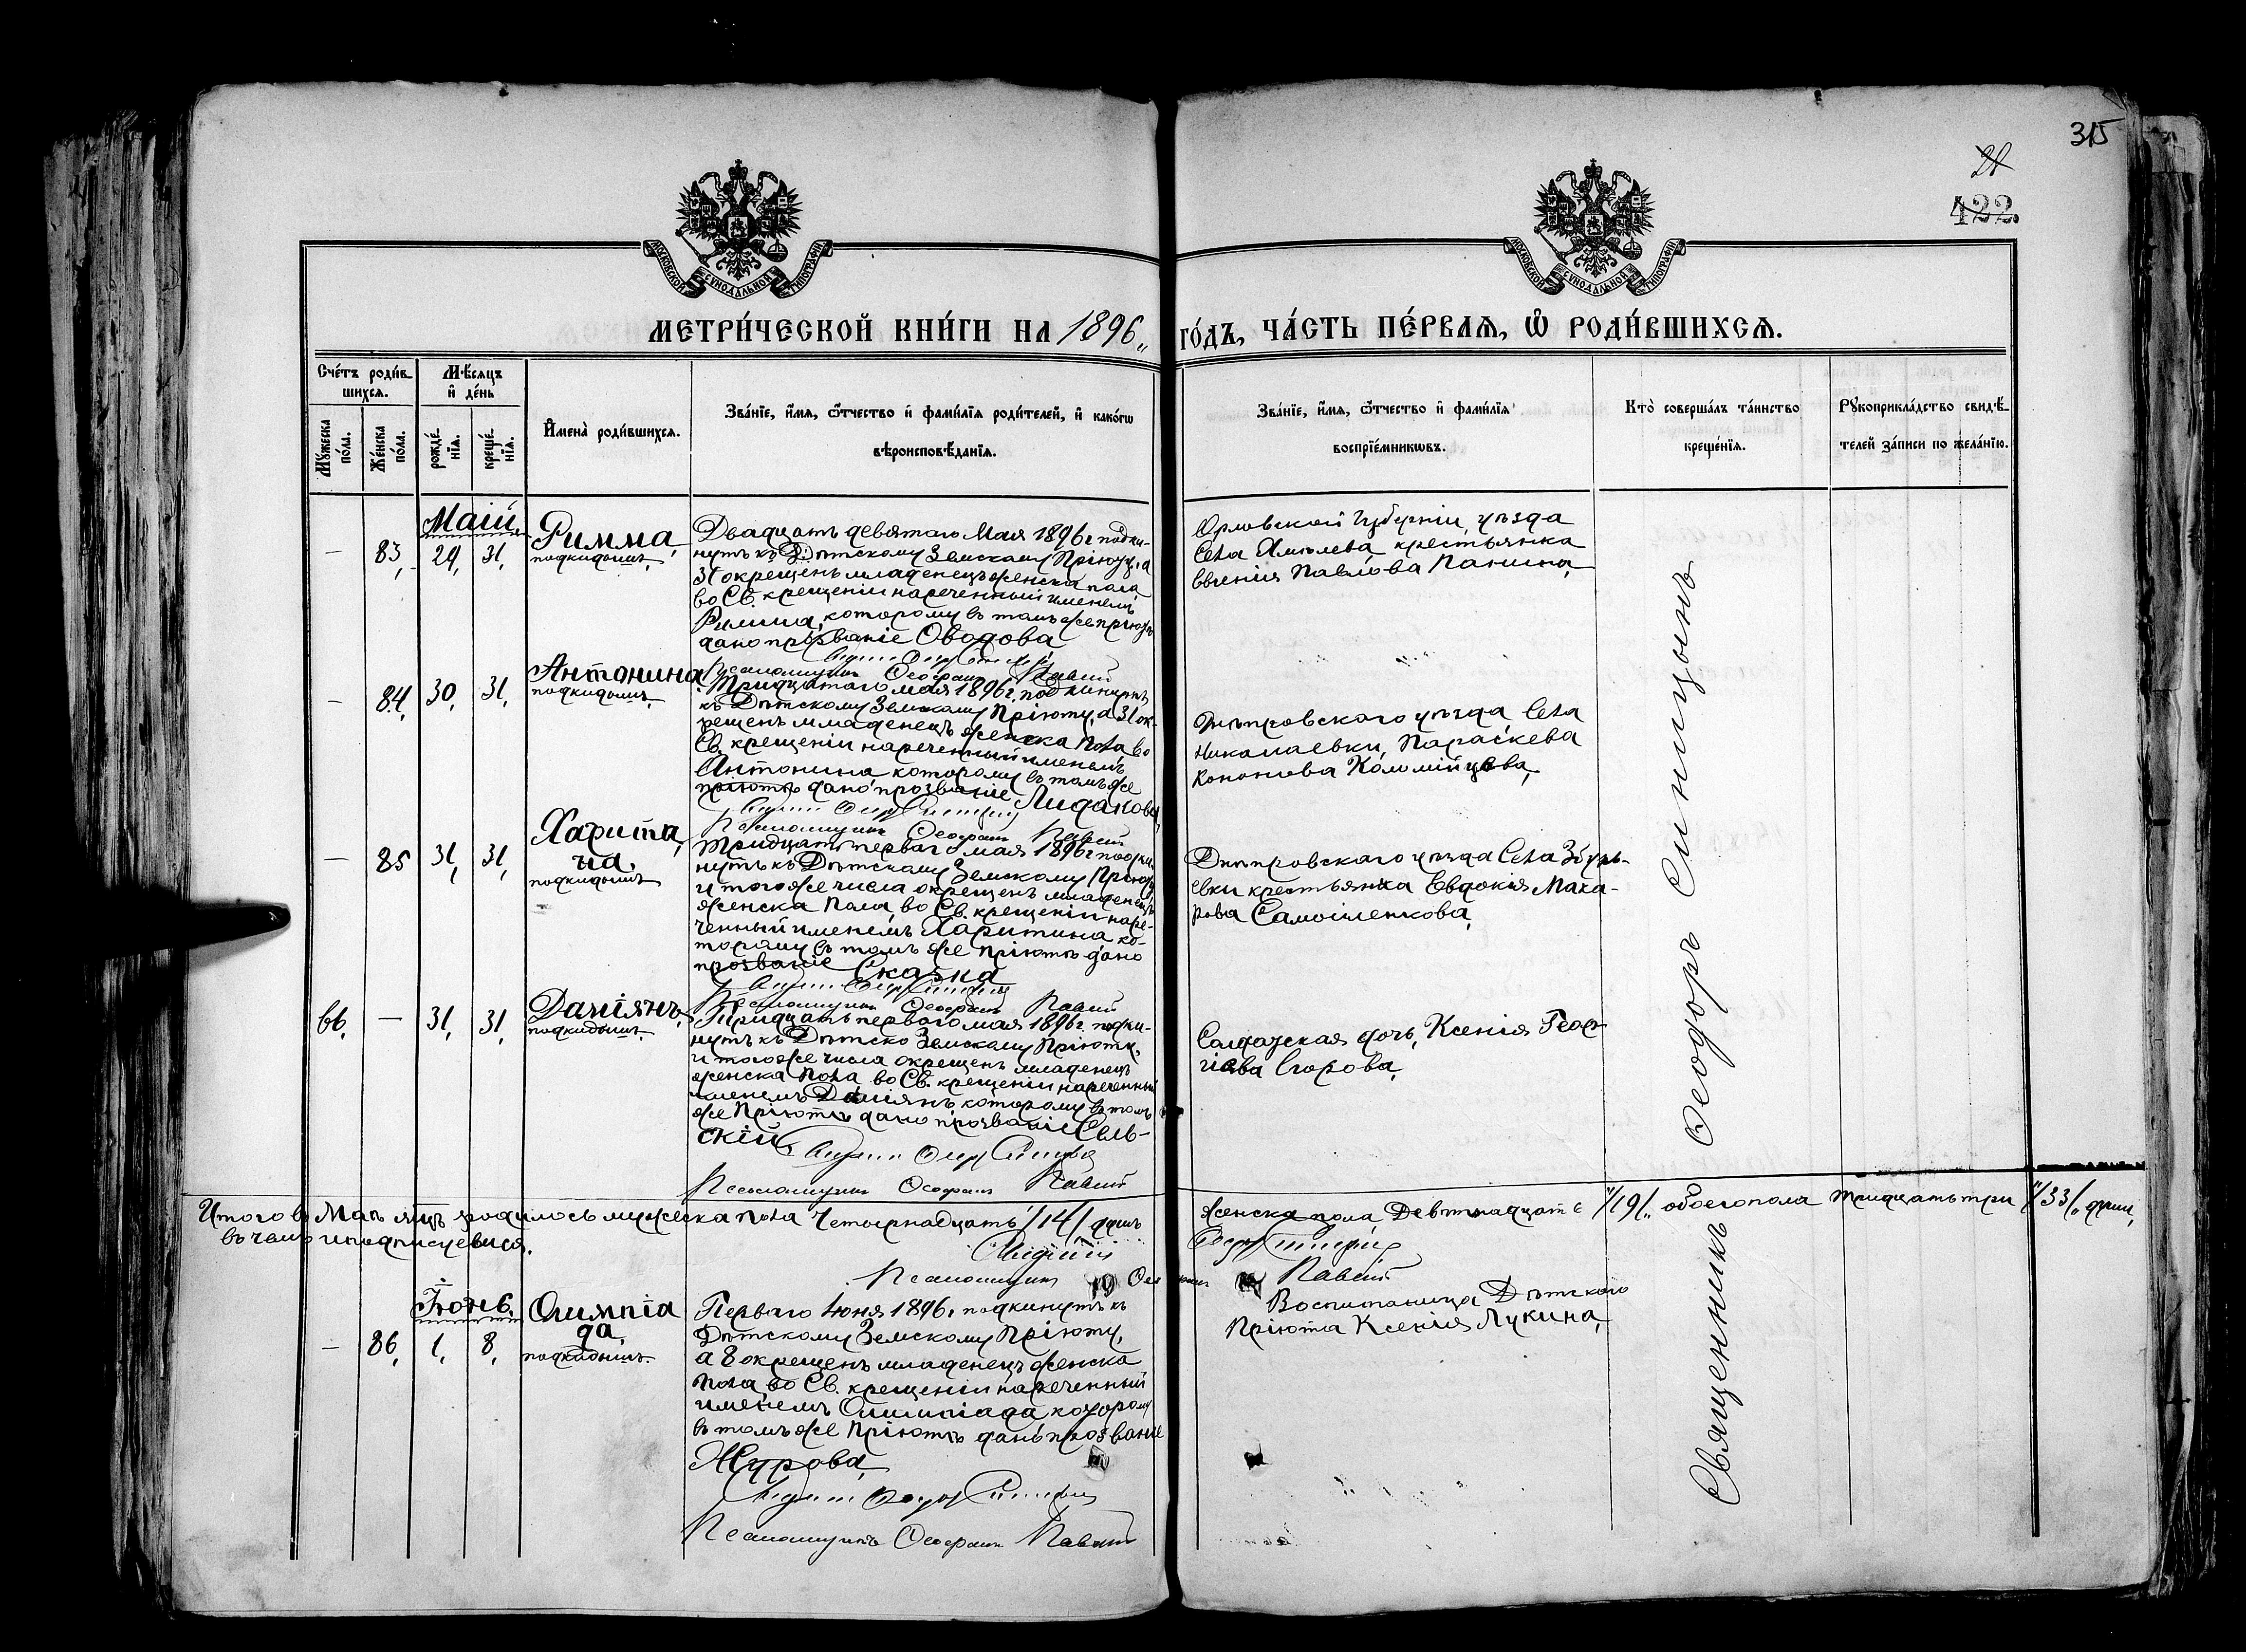 315
21
422
МОСКОВСКОЙ СѴНОДАЛЬНОЙ ТИПОГРАФІИ
МОСКОВСКОЙ СѴНОДАЛЬНОЙ ТИПОГРАФІИ
МЕТРИ́ЧЕСКОЙ КНИ́ГИ НА 1896 „ ГО́ДЪ, ЧА́СТЬ ПЕ́РВАѦ, Ѡ҆ РОДИ́ВШИХСѦ.
Сче́тъ роди́в-
шихсѧ.
Мѣ́сѧцъ
и҆ де́нь
Мꙋ́жеска по́ла.
Же́нска по́ла.
рожде́-нїѧ.
креще́-нїѧ.
И҆мена̀ роди́вшихсѧ.
Зва́нїе, и҆́мѧ, ѻ҆́тчество и҆ фами́лїѧ роди́телей, и҆ како́гѡ
вѣроисповѣ́данїѧ.
Зва́нїе, и҆́мѧ, ѻ҆́тчество и҆ фами́лїѧ
воспрїе́мникѡвъ.
Кто̀ соверша́лъ та́инство
креще́нїѧ.
Рꙋкоприкла́дство свидѣ́-
телей за́писи по жела́нїю.
Маій
— 83, 29, 31,
Римма,
подкидышъ,
Двадцать девятаго Мая 1896 г подки-
нутъ къ Дѣтскому Земскому Пріюту, а
31 окрещенъ младенецъ женска пола
во Св. крещеніи нареченный именемъ
Римма, которому въ томъ же пріютѣ
дано прозваніе Оводова
Псаломщикъ Ѳеофанъ Павлій
Орловской губерніи, уѣзда
Села крестьянка
Евгенія Павлова Панина,
— 84, 30, 31,
Антонина
подкидышъ,
Тридцатаго мая 1896 г. подкинутъ
къ Дѣтскому Земскому Пріюту, а 31 ок-
рещенъ младенецъ женска пола, во
Св. крещеніи нареченный именемъ
Антонина, которому въ томъ же
пріютѣ дано прозваніе Лидакова,
Псаломщикъ Ѳеофанъ Павлій
Днѣпровскаго уѣзда, Села
Николаевки, Параскева
Кононова Коломійцева,
— 85 31, 31,
Харити-
на,
подкидышъ
Тридцать перваго мая 1896 г подки-
нутъ къ Дѣтскому Земскому Пріюту
и того же числа окрещенъ младенецъ
женска пола, во Св. крещеніи наре-
ченный именемъ Харитина, ко-
торому въ томъ же пріютѣ дано
прозваніе Сказна
Псаломщикъ Ѳеофанъ Павлій
Днѣпровскаго уѣзда Села Збурь-
евки крестьянка Евдокія Мака-
рова Самойленкова,
66, — 31, 31,
Даміянъ,
подкидышъ,
Тридцать перваго мая 1896 г. подки-
нутъ къ Дѣтско Земскому Пріюту,
и того же числа окрещенъ младенецъ
женска пола во Св. крещеніи нареченный
именемъ Даміянъ которому въ томъ
же Пріютѣ дано прозваніе Сель-
скій
Псаломщикъ Ѳеофанъ Павлій
Солдатская дочь, Ксенія Геор-
гіева Егорова,
Итого въ Маѣ м-цѣ родилось мужеска пола Четырнадцать /14/ душъ женска пола Девятнадцать /19/, обоего пола тридцать три /33/ души,
въ чемъ и подписуемся.
Псаломщикъ Ѳеофанъ Павлій
Іюнь.
— 86, 1, 8,
Олимпіа
да,
подкидышъ.
Перваго Іюня 1896 г подкинутъ къ
Дѣтскому Земскому Пріюту,
а 8 окрещенъ младенецъ женска
пола, во Св. крещеніи нареченный
именемъ Олимпіада, которому
въ томъ же Пріютѣ дано прозваніе
Журова,
Псаломщикъ Ѳеофанъ Павлій
Воспитаница Дѣтскаго
Пріюта Ксенія Лукина,
Священникъ Ѳеодоръ Синицынъ